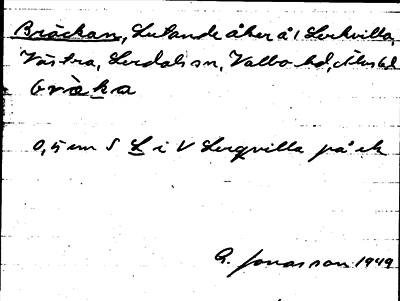 Bräckan, Lutande åker å 1 Lerkvilla,
Västra, Lerdals sn, Valbo hd, Älvsb l
bräka
0,5 cm S L i V Lerqvilla på ek
G. Jonasson 1949